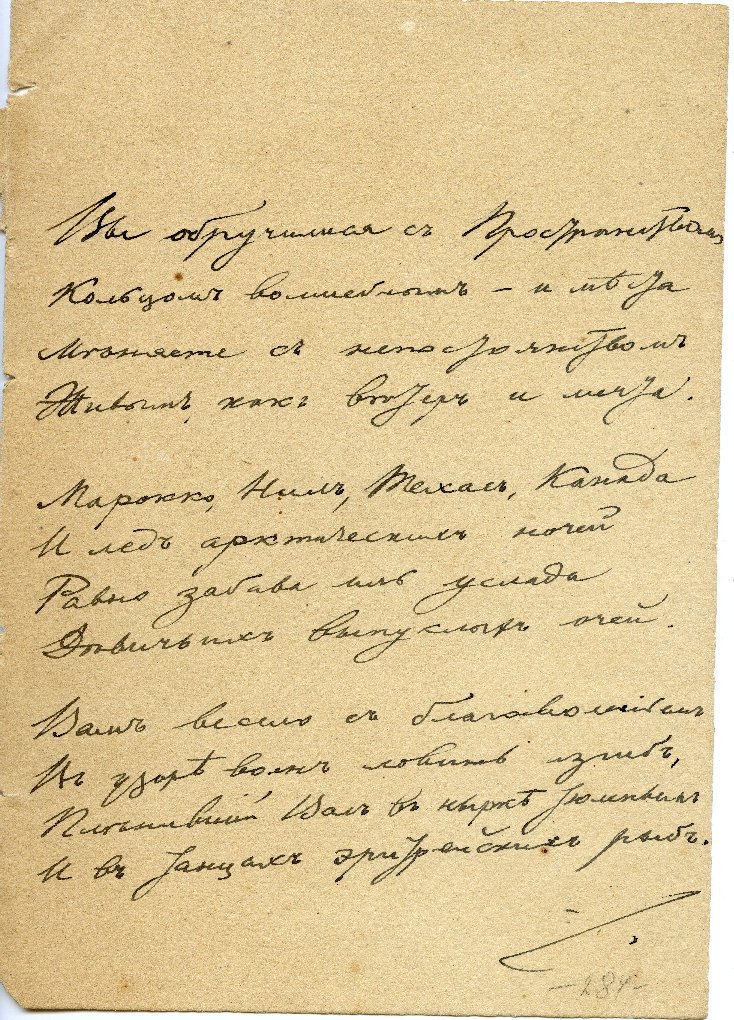 Вы обручилися съ Пространствомъ
Кольцомъ волшебнымъ – и мѣста
Мѣняете съ непостоянствомъ
Живымъ, какъ вѣтеръ и мечта.
Марокко, Нилъ, Техасъ, Канада
И ледъ арктическихъ ночей
Равно забава иль услада
Дѣвичьихъ выпуклыхъ очей.
Вамъ весело съ благоволеньемъ
Въ узорѣ волнъ ловить изгибъ,
Плѣнившій Васъ въ ныркѣ тюленьемъ
И въ танцахъ эритрейскихъ рыбъ.
-284-